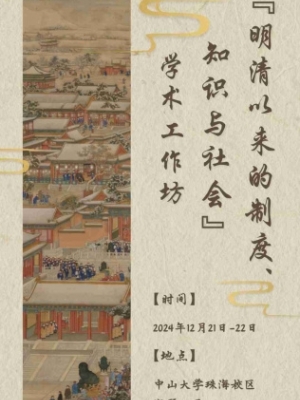 『明清以来的制度、
知识与社会』
学术工作坊
【时间】
2024年12月21日-22日
【地点】
中山大学珠海校区